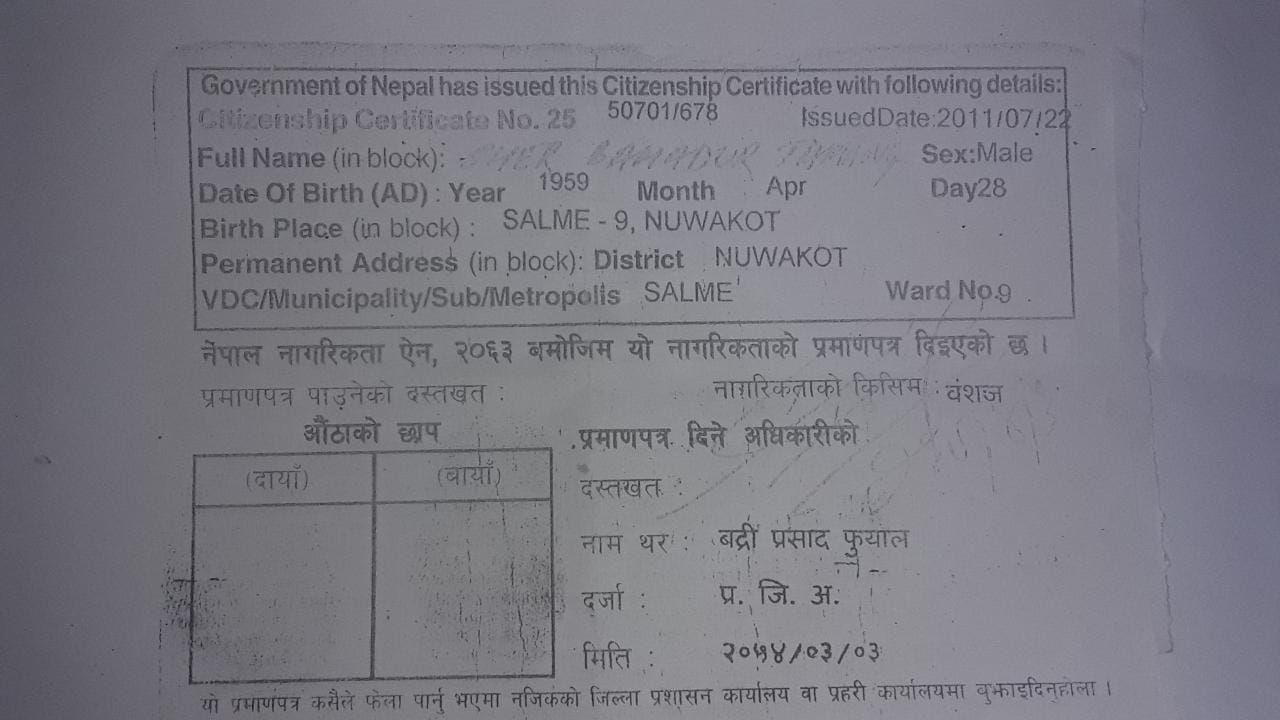 Government of Nepal has issued this Citizenship Certificate with following details:
Citizenship Certificate No. 25 50701/678 IssuedDate:2011/07/22
Full Name (in block): BAHADUR Sex:Male
Date Of Birth (AD) : Year 1959 Month Apr Day28
Birth Place (in block) : SALME - 9, NUWAKOT
Permanent Address (in block): District NUWAKOT
VDC/Municipality/Sub/Metropolis SALME Ward No.9
नेपाल नागरिकता ऐन, २०६३ बमोजिम यो नागरिकताको प्रमाणपत्र दिइएको छ ।
प्रमाणपत्र पाउनेको दस्तखत : नागरिकताको किसिम : वंशज
औंठाको छाप
(दायाँ) (बायाँ)
प्रमाणपत्र दिने अधिकारीको
दस्तखत :
नाम थर : बद्री प्रसाद फुयाल
दर्जा : प्र. जि. अ.
मिति : /०३/०३
यो प्रमाणपत्र कसैले फेला पार्नु भएमा नजिकको जिल्ला प्रशासन कार्यालय वा प्रहरी कार्यालयमा बुझाइदिनुहोला ।